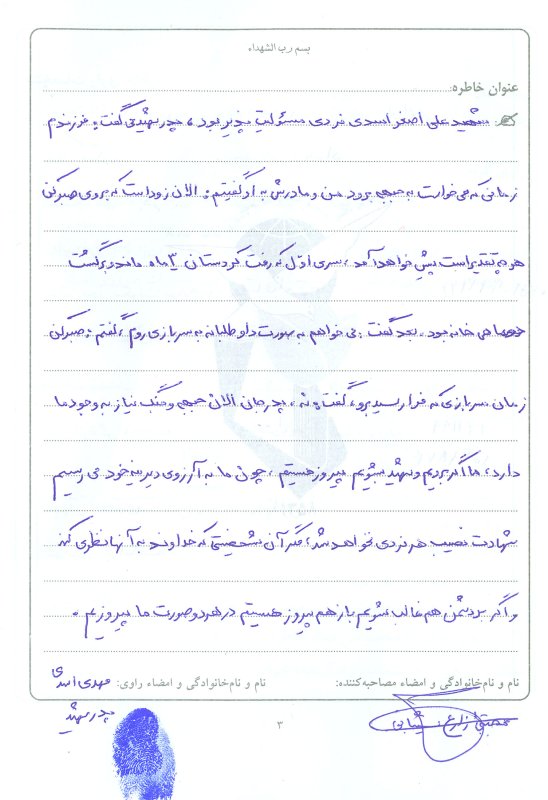 بسم رب الشهداء
عنوان خاطره:
شهید علی اصغر اسدی فردی مسئولیت پذیر بود، پدر شهید می گفت: فرزندم
زمانی که می خواست به جبهه برود من و مادرش به او گفتیم: الان زود است که بروی صبر کن
هر چه تقدیر است پیش خواهد آمد، سری اول که رفت کردستان ۳ ماه ماند و برگشت
ماهی خانه بود. بعد گفت: می خواهم به صورت داوطلبانه به سربازی روم، گفتم: صبر کن
زمان سربازی که فرا رسید برو، گفت: نه، پدر جان الان جبهه و جنگ نیاز به وجود ما
دارد، ما اگر بردیم و شهید بشویم پیروز هستیم، چون ما به آرزوی دیرینه خود می رسیم
شهادت نصیب هر فردی نخواهد شد، مگر آن شخصیتی که خداوند به آنها نظری کند
و اگر بر دشمن هم غالب بشویم باز هم پیروز هستیم در هر دو صورت ما پیروزیم.
نام و نام‌خانوادگی و امضاء مصاحبه‌کننده: نام و نام‌خانوادگی و امضاء راوی: مهدی اسدی
پدر شهید
۳